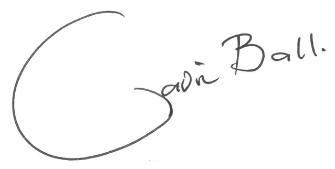 Gavin Ball.